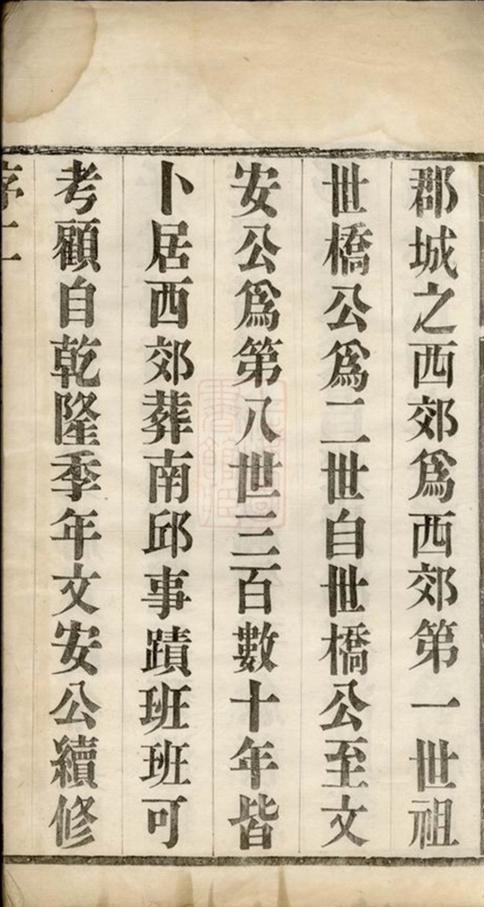 郡城之西郊爲西郊第一世祖
世橋公爲二世自世橋公至文
安公爲第八世三百數十年皆
卜居西郊葬南邱事蹟班班可
考顧自乾隆季年文安公續修
序二